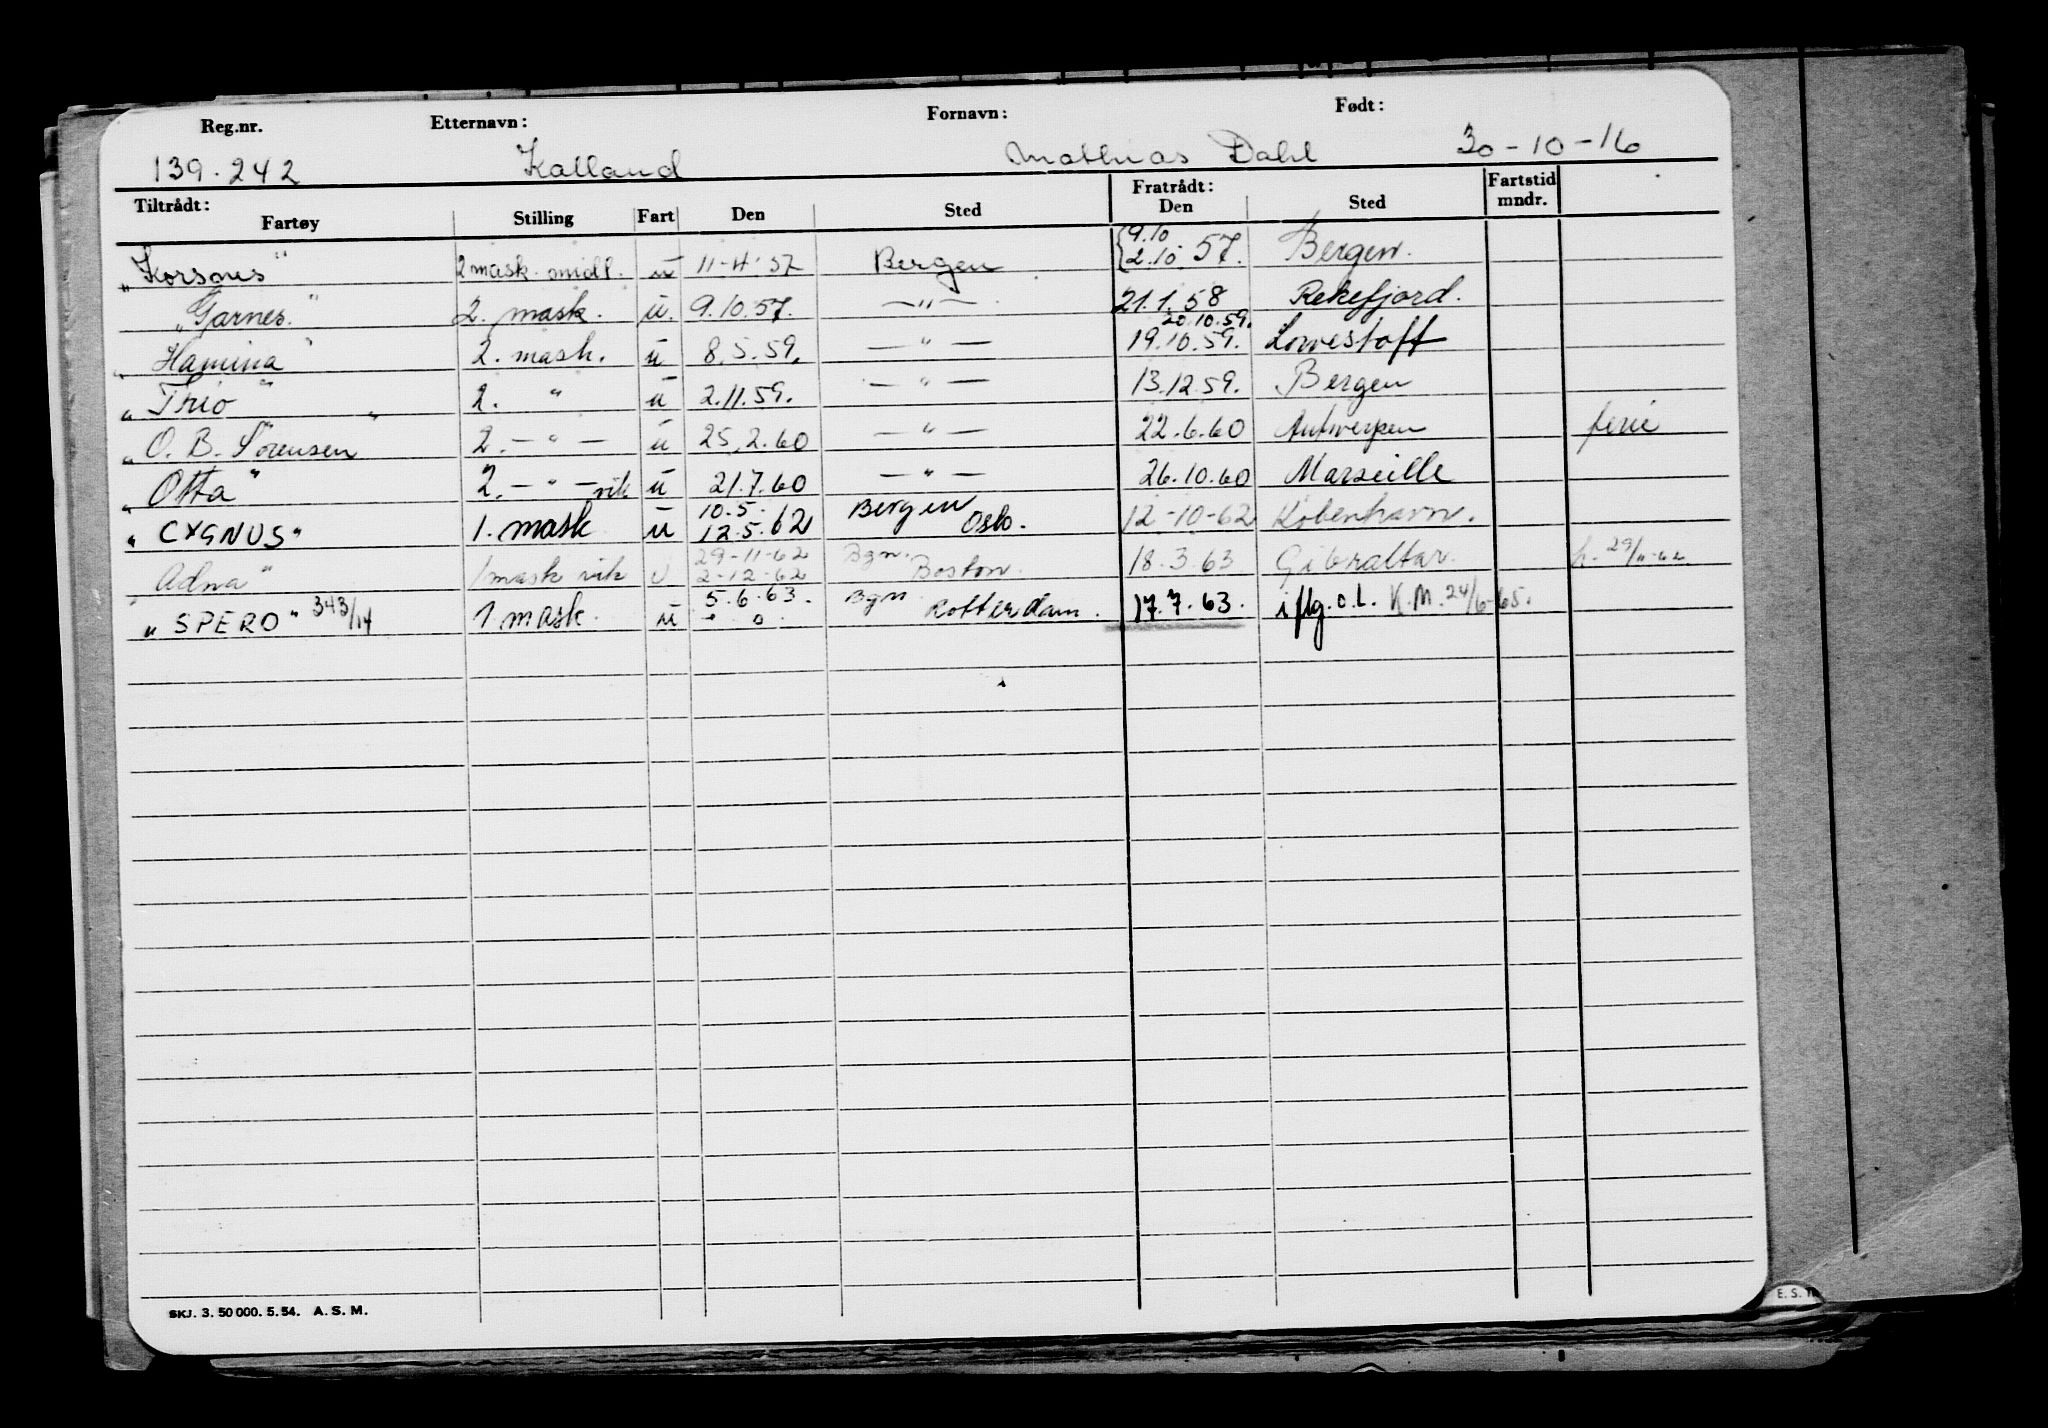 Reg.nr. Etternavn: Fornavn: Født:
139.242 Kalland Mathias Dahl 30-10-16
Tiltrådt: Fratrådt: Fartstid
Fartøy Stilling Fart Den Sted Den Sted mndr.
9.10
„Korsnes" 2 mask. midl. u 11-4-57 Bergen {2.10.57. Bergen.
„Garnes." 2. mask. u. 9.10.57. —"— 21.1.58 Rekefjord.
20.10.59.
„Hamina" 2. mask. u 8.5.59. —"— 19.10.59. Lowestoft
„Trio" 2. " u 2.11.59. —"— 13.12.59. Bergen
„O. B. Sørensen" 2. —"— u 25.2.60 —"— 22.6.60 Antwerpen ferie
„Otta" 2. —"— vik u 21.7.60 —"— 26.10.60 Marseille
10.5. Bergen
„CYGNUS" 1. mask u 12.5.62 Oslo. 12-10-62 København.
29-11-62 Bgn.
„Adna" 1 mask vik u 2-12-62 Boston. 18.3.63 Gibraltar. h. 29/11-62
5.6.63. Bgn
„SPERO" 343/14 1. mask. u " " . Rotterdam. 17.7.63. iflg. o.l. K.M. 24/6-65.
SKJ. 3. 50 000. 5. 54. A. S. M.
E. S.